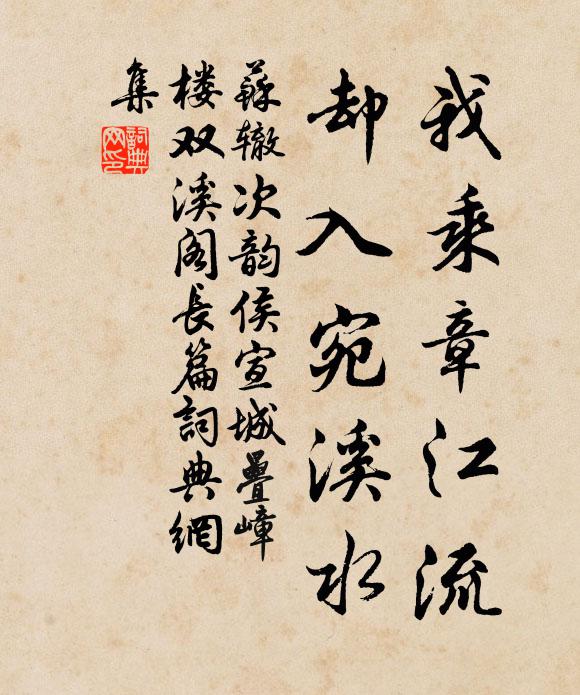 我乘章江流
却入宛溪水
蘇辙次韵侯宣城疊嶂
楼双溪阁長篇詞典網
集
詞典
网印